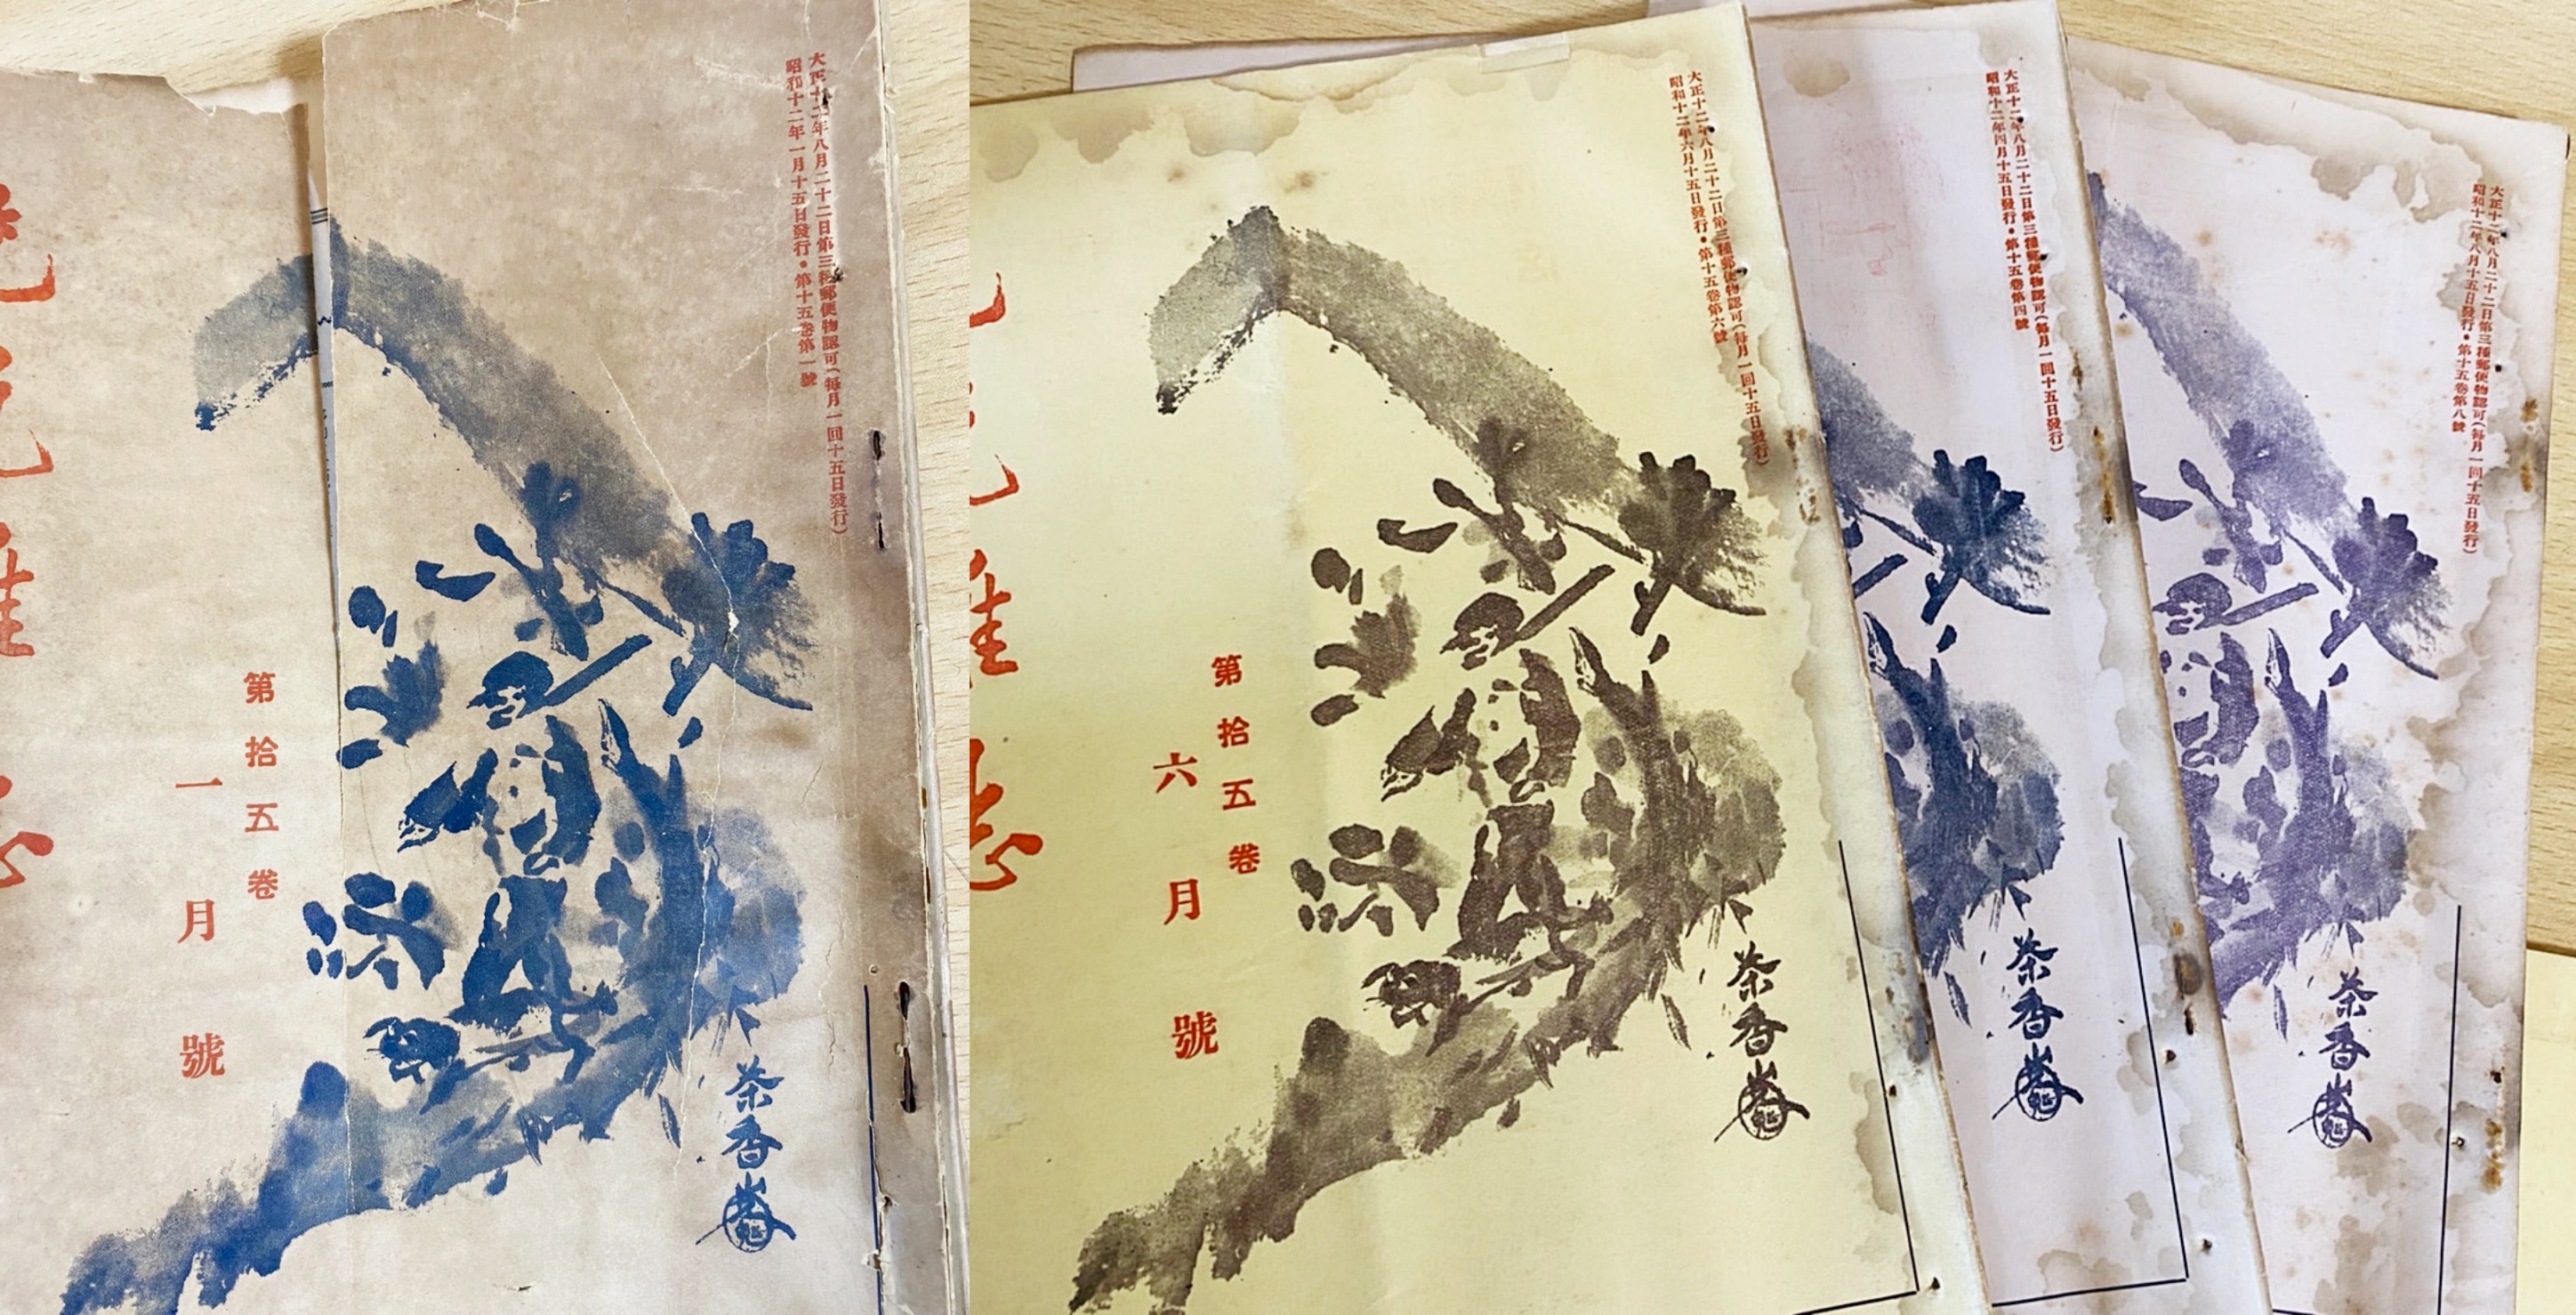 大正十二年八月二十二日第三種郵便物認可(每月一回十五日發行)
昭和十二年一月十五日發行•第十五卷第一號
第拾五卷
一月號
茶香
大正十二年八月二十二日第三種郵便物認可(每月一回十五日發行)
昭和十二年六月十五日發行•第十五卷第六號
第拾五卷
六月號
茶香
大正十二年八月二十二日第三種郵便物認可(每月一回十五日發行)
昭和十二年四月十五日發行•第十五卷第四號
茶香
大正十二年八月二十二日第三種郵便物認可(每月一回十五日發行)
昭和十二年八月十五日發行•第十五卷第八號
茶香